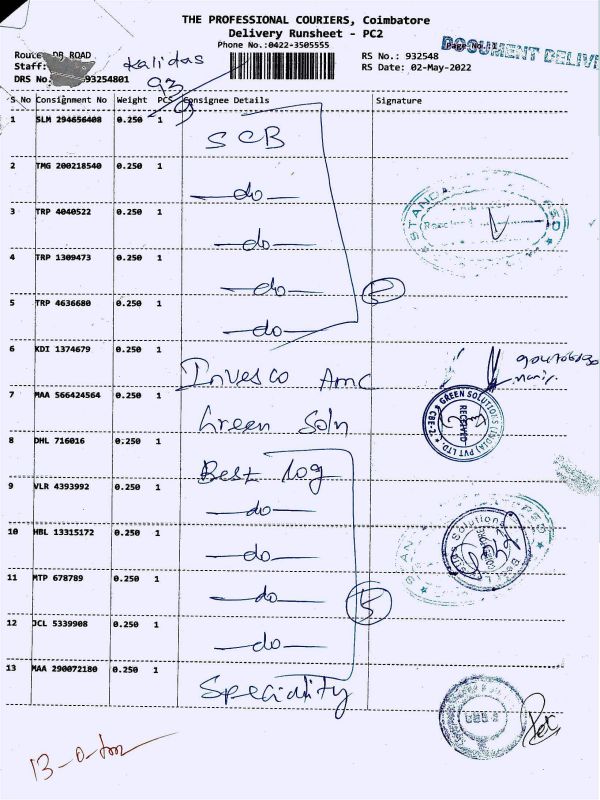 THE PROFESSIONAL COURIERS, Coimbatore
Delivery Runsheet - PC2
Phone No.:0422-3505555
Page No.:1
DOCUMENT DELIV
Route: DB ROAD
RS No.: 932548
Staff: Kalidas
RS Date: 02-May-2022
DRS No. 93254801
93
S No Consignment No Weight PCS Consignee Details Signature
1 SLM 294656408 0.250 1 SCB
2 TMG 200218540 0.250 1 -do-
3 TRP 4040522 0.250 1 -do-
4 TRP 1309473 0.250 1 -do-
5 TRP 4636680 0.250 1 -do-
6 KDI 1374679 0.250 1 Invesco Amc
7 MAA 566424564 0.250 1 Green Soln
GREEN SOLUTIONS (INDIA) PVT LTD.
RECEIVED
8 DHL 716016 0.250 1 Best log
9 VLR 4393992 0.250 1 -do-
10 HBL 13315172 0.250 1 -do-
11 MTP 678789 0.250 1 -do-
5
12 JCL 5339908 0.250 1 -do-
13 MAA 290072180 0.250 1 Speciality